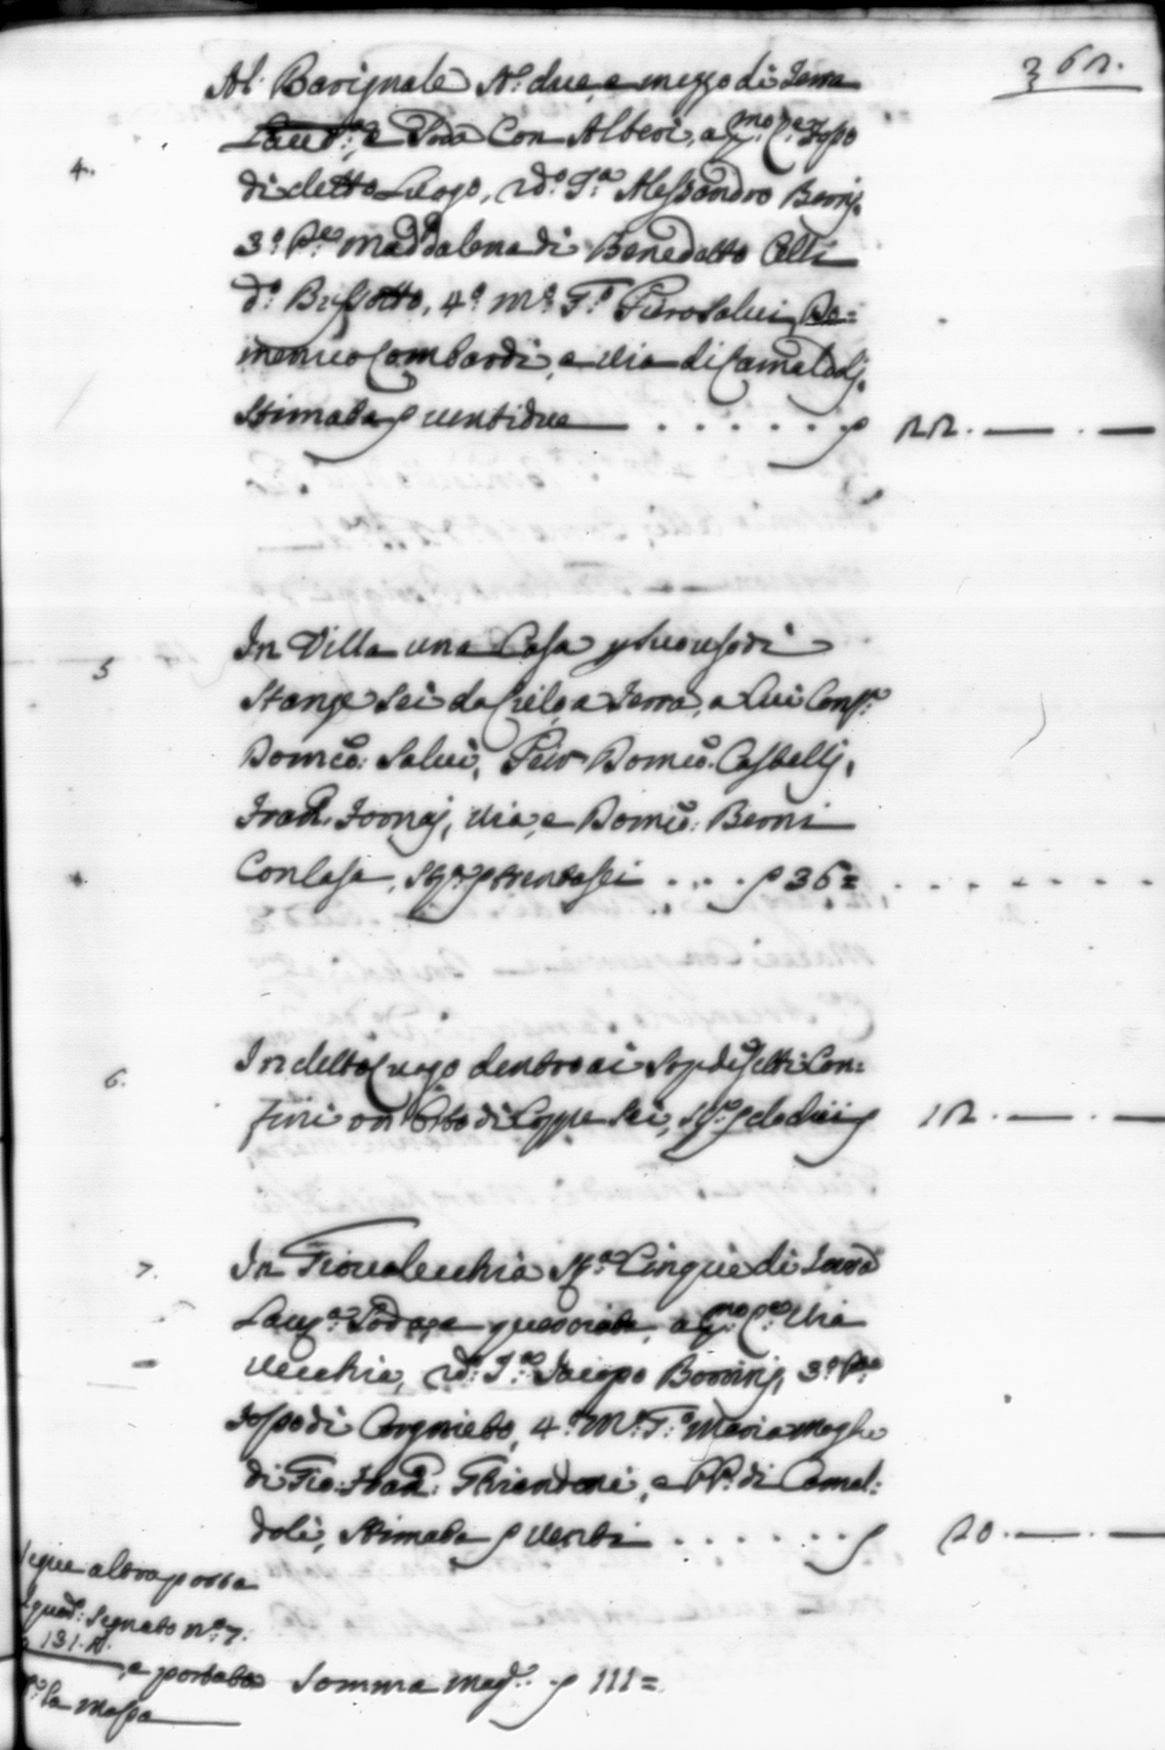 362.
Al Barignale N.º due, e mezzo di Terra
Lau.ª, e Soda Con Alberi, a p.mo C.º Fosso
4. di detto Luogo, 2d.º T.ª Alessandro Bernj,
3.º P.e Maddalena di Benedetto Celli
d.º Bussotto, 4.º M.º T.º Piero Salui, Do=
menico Lombardi, e Via di Camaldoli,
Stimata p uentidue . . . . . . p 22. — . —
5 In Villa una Casa p suo uso di
Stanze Sei da Cielo a Terra, a Cui Conf.º
Domco: Salui, Piero Domco. Castellj,
Fran. Fornaj, Via, e Domco: Berni
Con Casa, St.ª p trentasei . . . . p 36= . . . . . .
6. In detto Luogo dentro ai Sop.descritti Con:
fini un Orto di Coppe Sei, St.º p dodici p 12. — . —
7. In Fioualecchia St.ª Cinque di Terra
Lau.ª Soda, e querciata, a p.mo C.º Via
Vecchia, 2d.º T.º Jacopo Borrinj, 3.º P.e
Fosso di Corgnieto, 4.º M.º T.º Maria Moglie
di Gio: Fran: Ghirandoni, e PP. di Camal:
doli, Stimata p Venti . . . . . . p 20. — . —
Segue altra posta
Squad.º Segnato n.º 7.
a 131.
, e portata Somma mag.re p 111=
la Massa